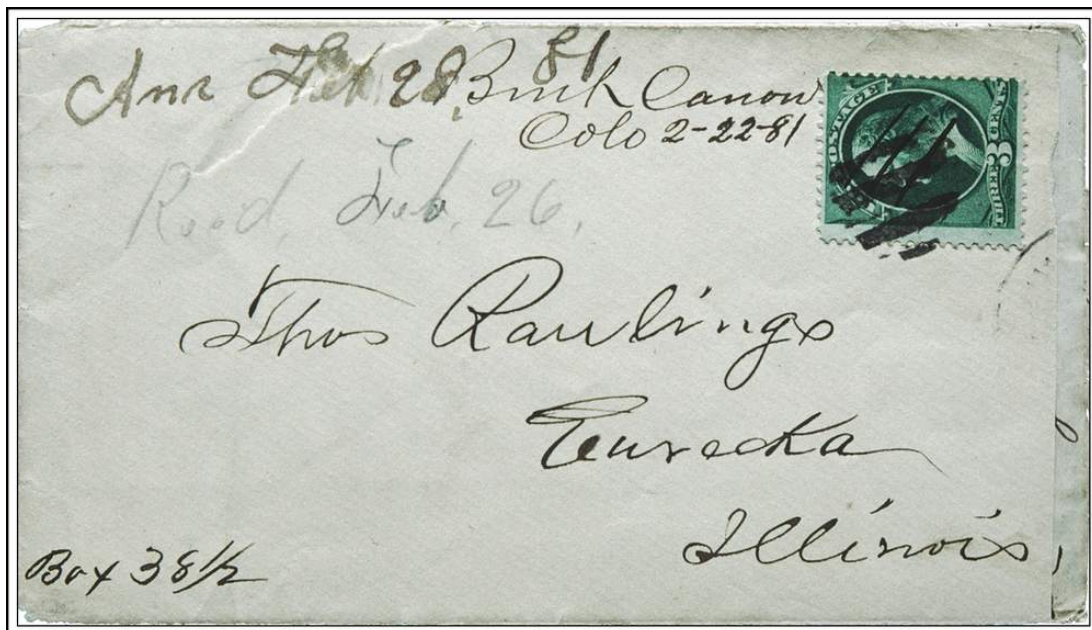 Ans Feb 28, 81
Bush Canon
Colo 2-22-81
Recd, Feb, 26,
Thos Rawlings
Eurecka
Illinois,
Box 38½
POSTAGE
3